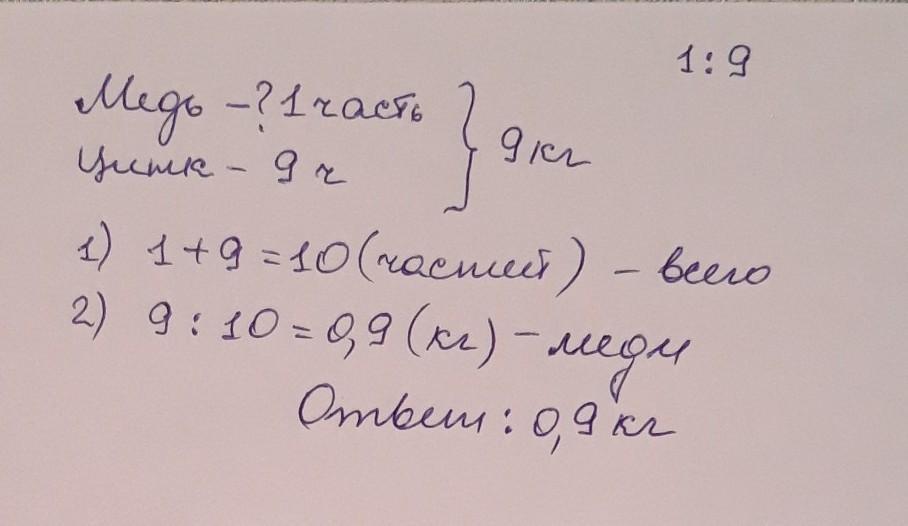 1:9
Медь –? 1 часть
Цинк – 9 ч
9 кг
1) 1+9=10 (частей) – всего
2) 9:10=0,9 (кг) – меди
Ответ: 0,9 кг